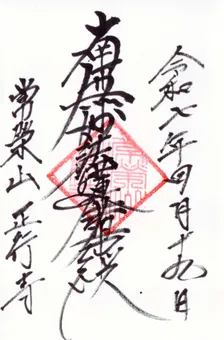 令和七年四月十九日
南無妙法蓮華経
常栄山 正行寺